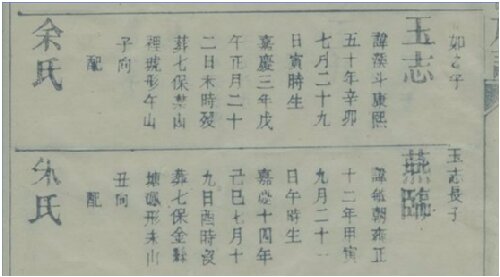 如之子
玉志
諱漢斗康熙
五十年辛卯
七月二十九
日寅時生
嘉慶三年戊
午正月二十
二日未時歿
葬七保葉凹
裡號形午山
子向
配
余氏
玉志長子
燕臨
諱毓朝雍正
十二年甲寅
九月二十一
日午時生
嘉慶十四年
己巳七月十
九日酉時歿
葬七保金
塘鳳形未山
丑向
配
朱氏